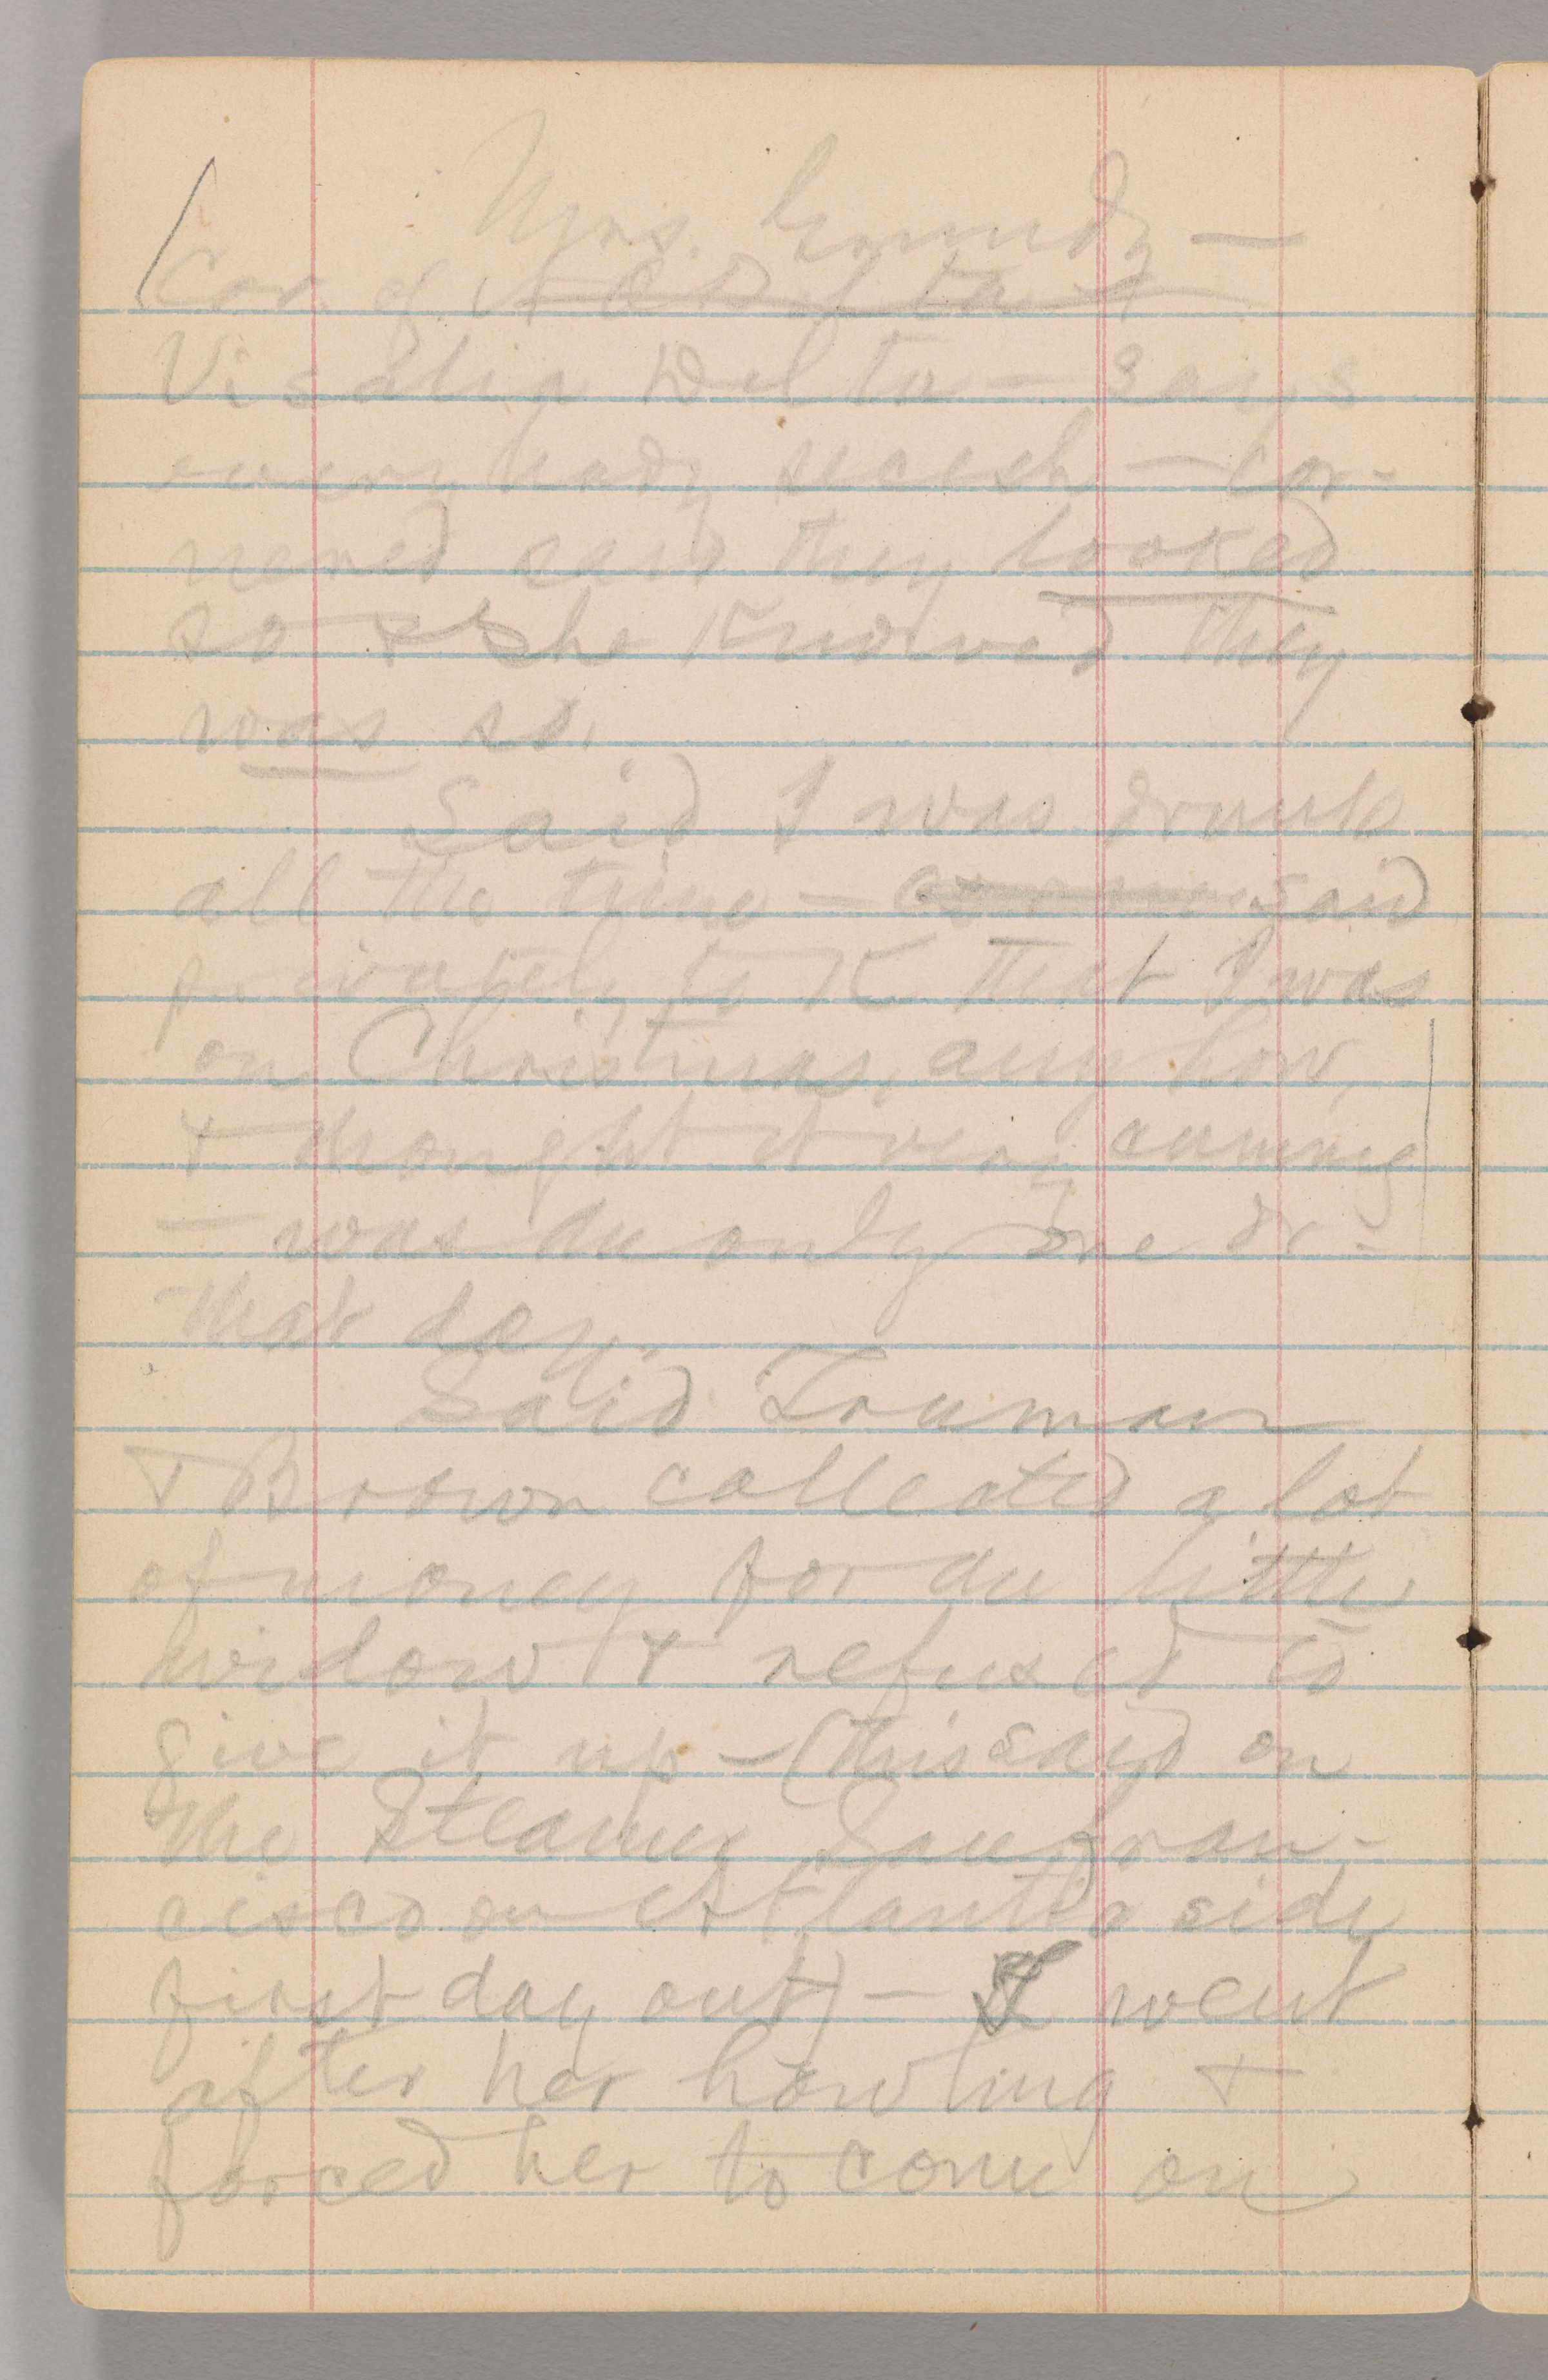 Mrs. Grundy —
Cor. of
Visalia Delta — says
everybody secesh — cor-
nered said they looked
so & she knowed they
was so.
Said I was drunk
all the time — said
privately to K that I was
on Christmas, anyhow,
& thought it very cunning
— was an only one dr-
that day.
Said Truman
& Brown collected a lot
of money for an little
widow & refused to
give it up — (this said on
the Steamer San Fran-
cisco on Atlantic side
first day out) — I went
after her howling &
forced her to come on